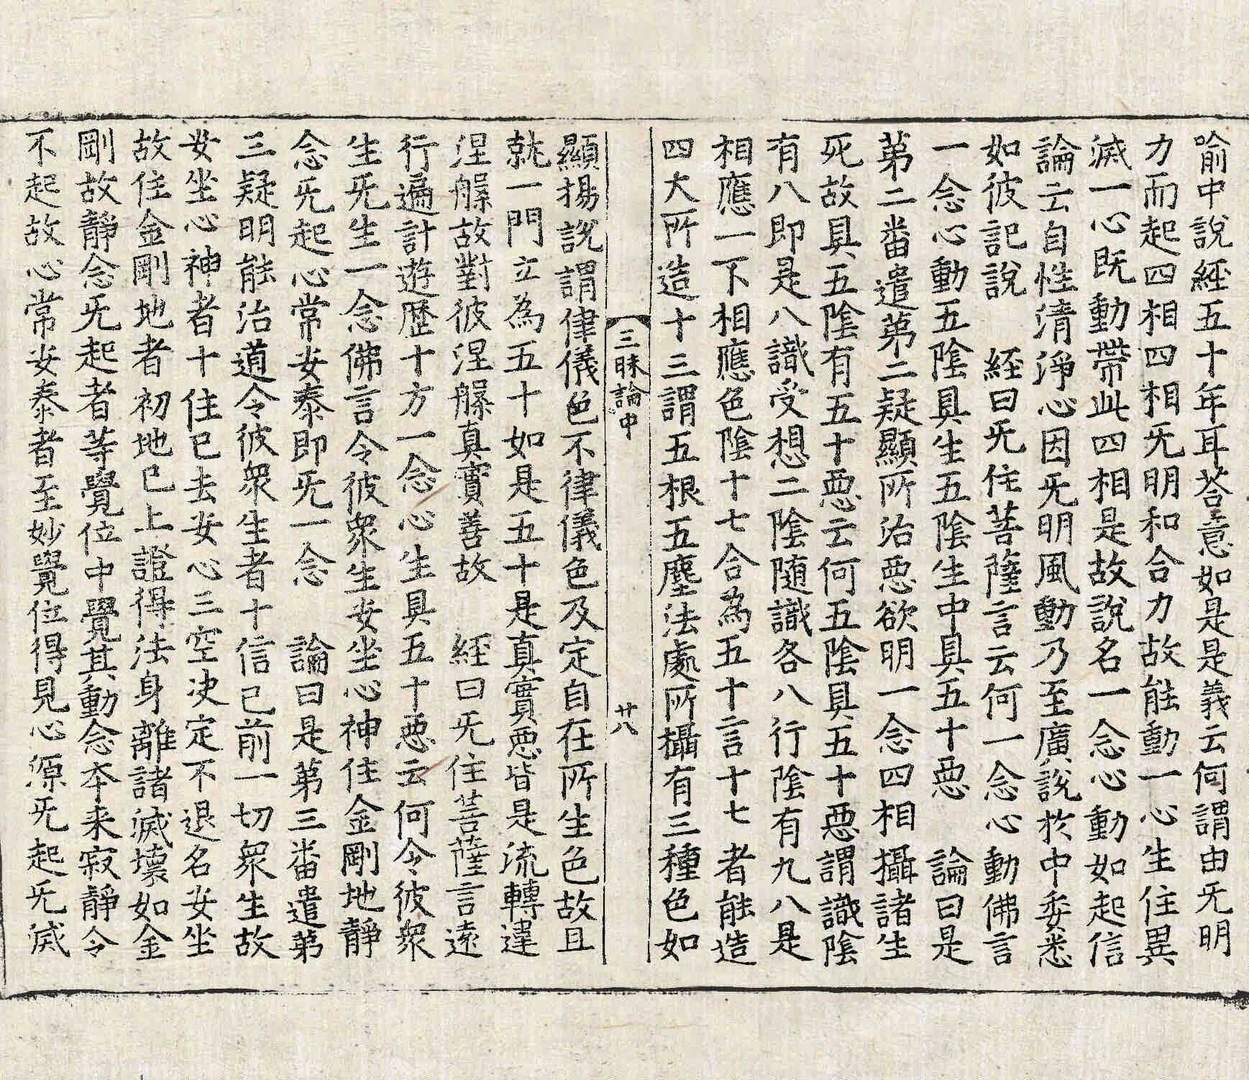 喻中說經五十年耳荅意如是是義云何謂由无明
力而起四相四相无明和合力故能動一心生住異
滅一心旣動帶此四相是故說名一念心動如起信
論云自性清淨心因无明風動乃至廣說於中委悉
如彼記說　經曰无住菩薩言云何一念心動佛言
一念心動五陰具生五陰生中具五十惡　論曰是
第二番遣第二疑顯所治惡欲明一念四相攝諸生
死故具五陰有五十惡云何五陰具五十惡謂識陰
有八即是八識受想二陰随識各八行陰有九八是
相應一下相應色陰十七合為五十言十七者能造
四大所造十三謂五根五塵法處所攝有三種色如
三昧論中　廿八
顯揚說謂律儀色不律儀色及定自在所生色故且
就一門立為五十如是五十是真實惡皆是流轉違
涅槃故對彼涅槃真實善故　經曰无住菩薩言遠
行遍計遊歷十方一念心生具五十惡云何令彼衆
生无生一念佛言令彼衆生安坐心神住金剛地靜
念无起心常安泰即无一念　論曰是第三番遣第
三疑明能治道令彼衆生者十信已前一切衆生故
安坐心神者十住已去安心三空决定不退名安坐
故住金剛地者初地已上證得法身離諸滅壞如金
剛故靜念无起者等覺位中覺其動念本来寂靜令
不起故心常安泰者至妙覺位得見心源无起无滅